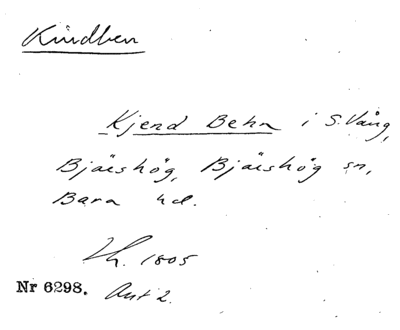 Kindben
Kjend Behn i S. Vång,
Bjäeshög, Bjäeshög sn,
Bara hd.
Lh. 1805
Nr 6298. Ant 2.